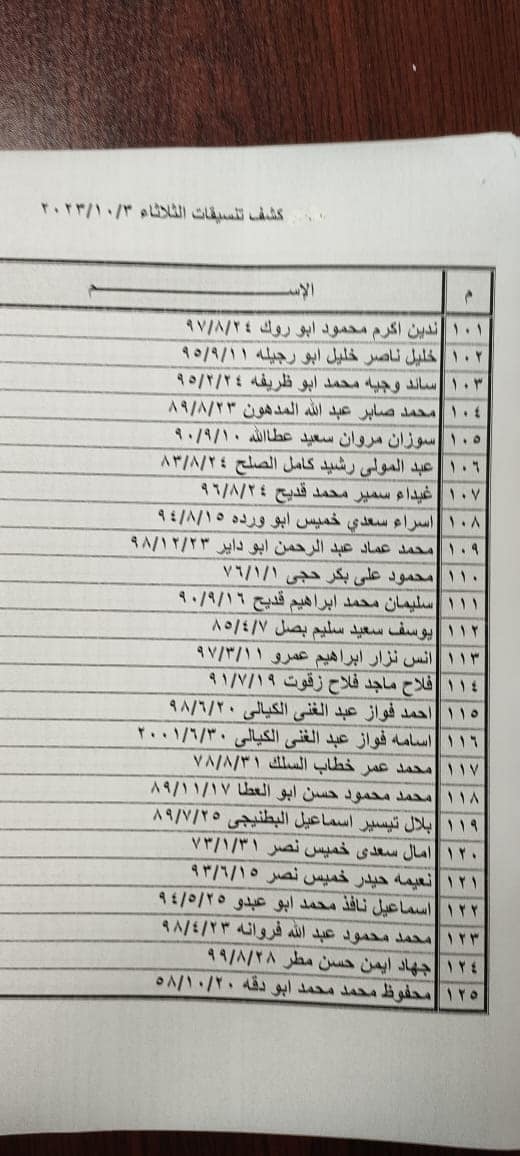 كشف تنسيقات الثلاثاء ٢٠٢٣/١٠/٣
م الإســـــــــم
١٠١ ندين اكرم محمود ابو روك ٩٧/٨/٢٤
١٠٢ خليل ناصر خليل ابو رجيله ٩٥/٩/١١
١٠٣ ساند وجيه محمد ابو ظريفه ٩٥/٢/٢٤
١٠٤ محمد صابر عبد الله المدهون ٨٩/٨/٢٣
١٠٥ سوزان مروان سعيد عطاالله ٩٠/٩/١٠
١٠٦ عبد المولى رشيد كامل الصلح ٨٣/٨/٢٤
١٠٧ غيداء سمير محمد قديح ٩٦/٨/٢٤
١٠٨ اسراء سعدي خميس ابو ورده ٩٤/٨/١٥
١٠٩ محمد عماد عبد الرحمن ابو داير ٩٨/١٢/٢٣
١١٠ محمود على بكر حجى ٧٦/١/١
١١١ سليمان محمد ابراهيم قديح ٩٠/٩/١٦
١١٢ يوسف سعيد سليم بصل ٨٥/٤/٧
١١٣ انس نزار ابراهيم عمرو ٩٧/٣/١١
١١٤ فلاح ماجد فلاح زقوت ٩١/٧/١٩
١١٥ احمد فواز عبد الغنى الكيالى ٩٨/٦/٢٠
١١٦ اسامه فواز عبد الغنى الكيالى ٢٠٠١/٦/٣٠
١١٧ محمد عمر خطاب السلك ٧٨/٨/٣١
١١٨ محمد محمود حسن ابو العطا ٨٩/١١/١٧
١١٩ بلال تيسير اسماعيل البطنيجى ٨٩/٧/٢٥
١٢٠ امال سعدى خميس نصر ٧٣/١/٣١
١٢١ نعيمه حيدر خميس نصر ٩٣/٦/١٥
١٢٢ اسماعيل نافذ محمد ابو عبدو ٩٤/٥/٢٥
١٢٣ محمد محمود عبد الله فروانه ٩٨/٤/٢٣
١٢٤ جهاد ايمن حسن مطر ٩٩/٨/٢٨
١٢٥ محفوظ محمد محمد ابو دقه ٥٨/١٠/٢٠